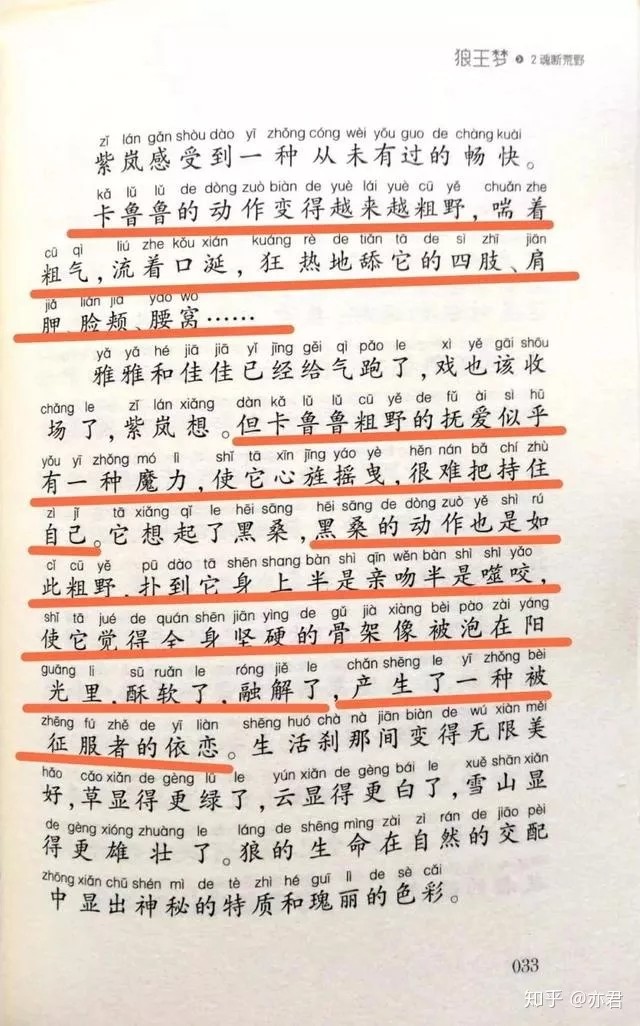 狼王梦 2 魂断荒野
zǐ lán gǎn shòu dào yī zhǒng cóng wèi yǒu guo de chàng kuài
紫岚感受到一种从未有过的畅快。
kǎ lǔ lǔ de dòng zuò biàn de yuè lái yuè cū yě chuǎn zhe
卡鲁鲁的动作变得越来越粗野，喘着
cū qì liú zhe kǒu xián kuáng rè de tiǎn tā de sì zhī jiān
粗气，流着口涎，狂热地舔它的四肢、肩
jiǎ liǎn jiá yāo wō
胛、脸颊、腰窝……
yǎ yǎ hé jiā jiā yǐ jīng gěi qì pǎo le xì yě gāi shōu
雅雅和佳佳已经给气跑了，戏也该收
chǎng le zǐ lán xiǎng dàn kǎ lǔ lǔ cū yě de fǔ ài sì hū
场了，紫岚想。但卡鲁鲁粗野的抚爱似乎
yǒu yī zhǒng mó lì shǐ tā xīn jīng yáo yè hěn nán bǎ chí zhù
有一种魔力，使它心旌摇曳，很难把持住
zì jǐ tā xiǎng qǐ le hēi sāng hēi sāng de dòng zuò yě shì rú
自己。它想起了黑桑，黑桑的动作也是如
cǐ cū yě pū dào tā shēn shang bàn shì qīn wěn bàn shì shì yǎo
此粗野，扑到它身上半是亲吻半是噬咬，
shǐ tā jué de quán shēn jiān yìng de gǔ jià xiàng bèi pào zài yáng
使它觉得全身坚硬的骨架像被泡在阳
guāng li sū ruǎn le róng jiě le chǎn shēng le yī zhǒng bèi
光里，酥软了，融解了，产生了一种被
zhēng fú zhě de yī liàn shēng huó chà nà jiān biàn de wú xiàn měi
征服者的依恋。生活刹那间变得无限美
hǎo cǎo xiǎn de gèng lǜ le yún xiǎn de gèng bái le xuě shān xiǎn
好，草显得更绿了，云显得更白了，雪山显
de gèng xióng zhuàng le láng de shēng mìng zài zì rán de jiāo pèi
得更雄壮了。狼的生命在自然的交配
zhōng xiǎn chū shén mì de tè zhì hé guī lì de sè cǎi
中显出神秘的特质和瑰丽的色彩。
033
知乎 @亦君